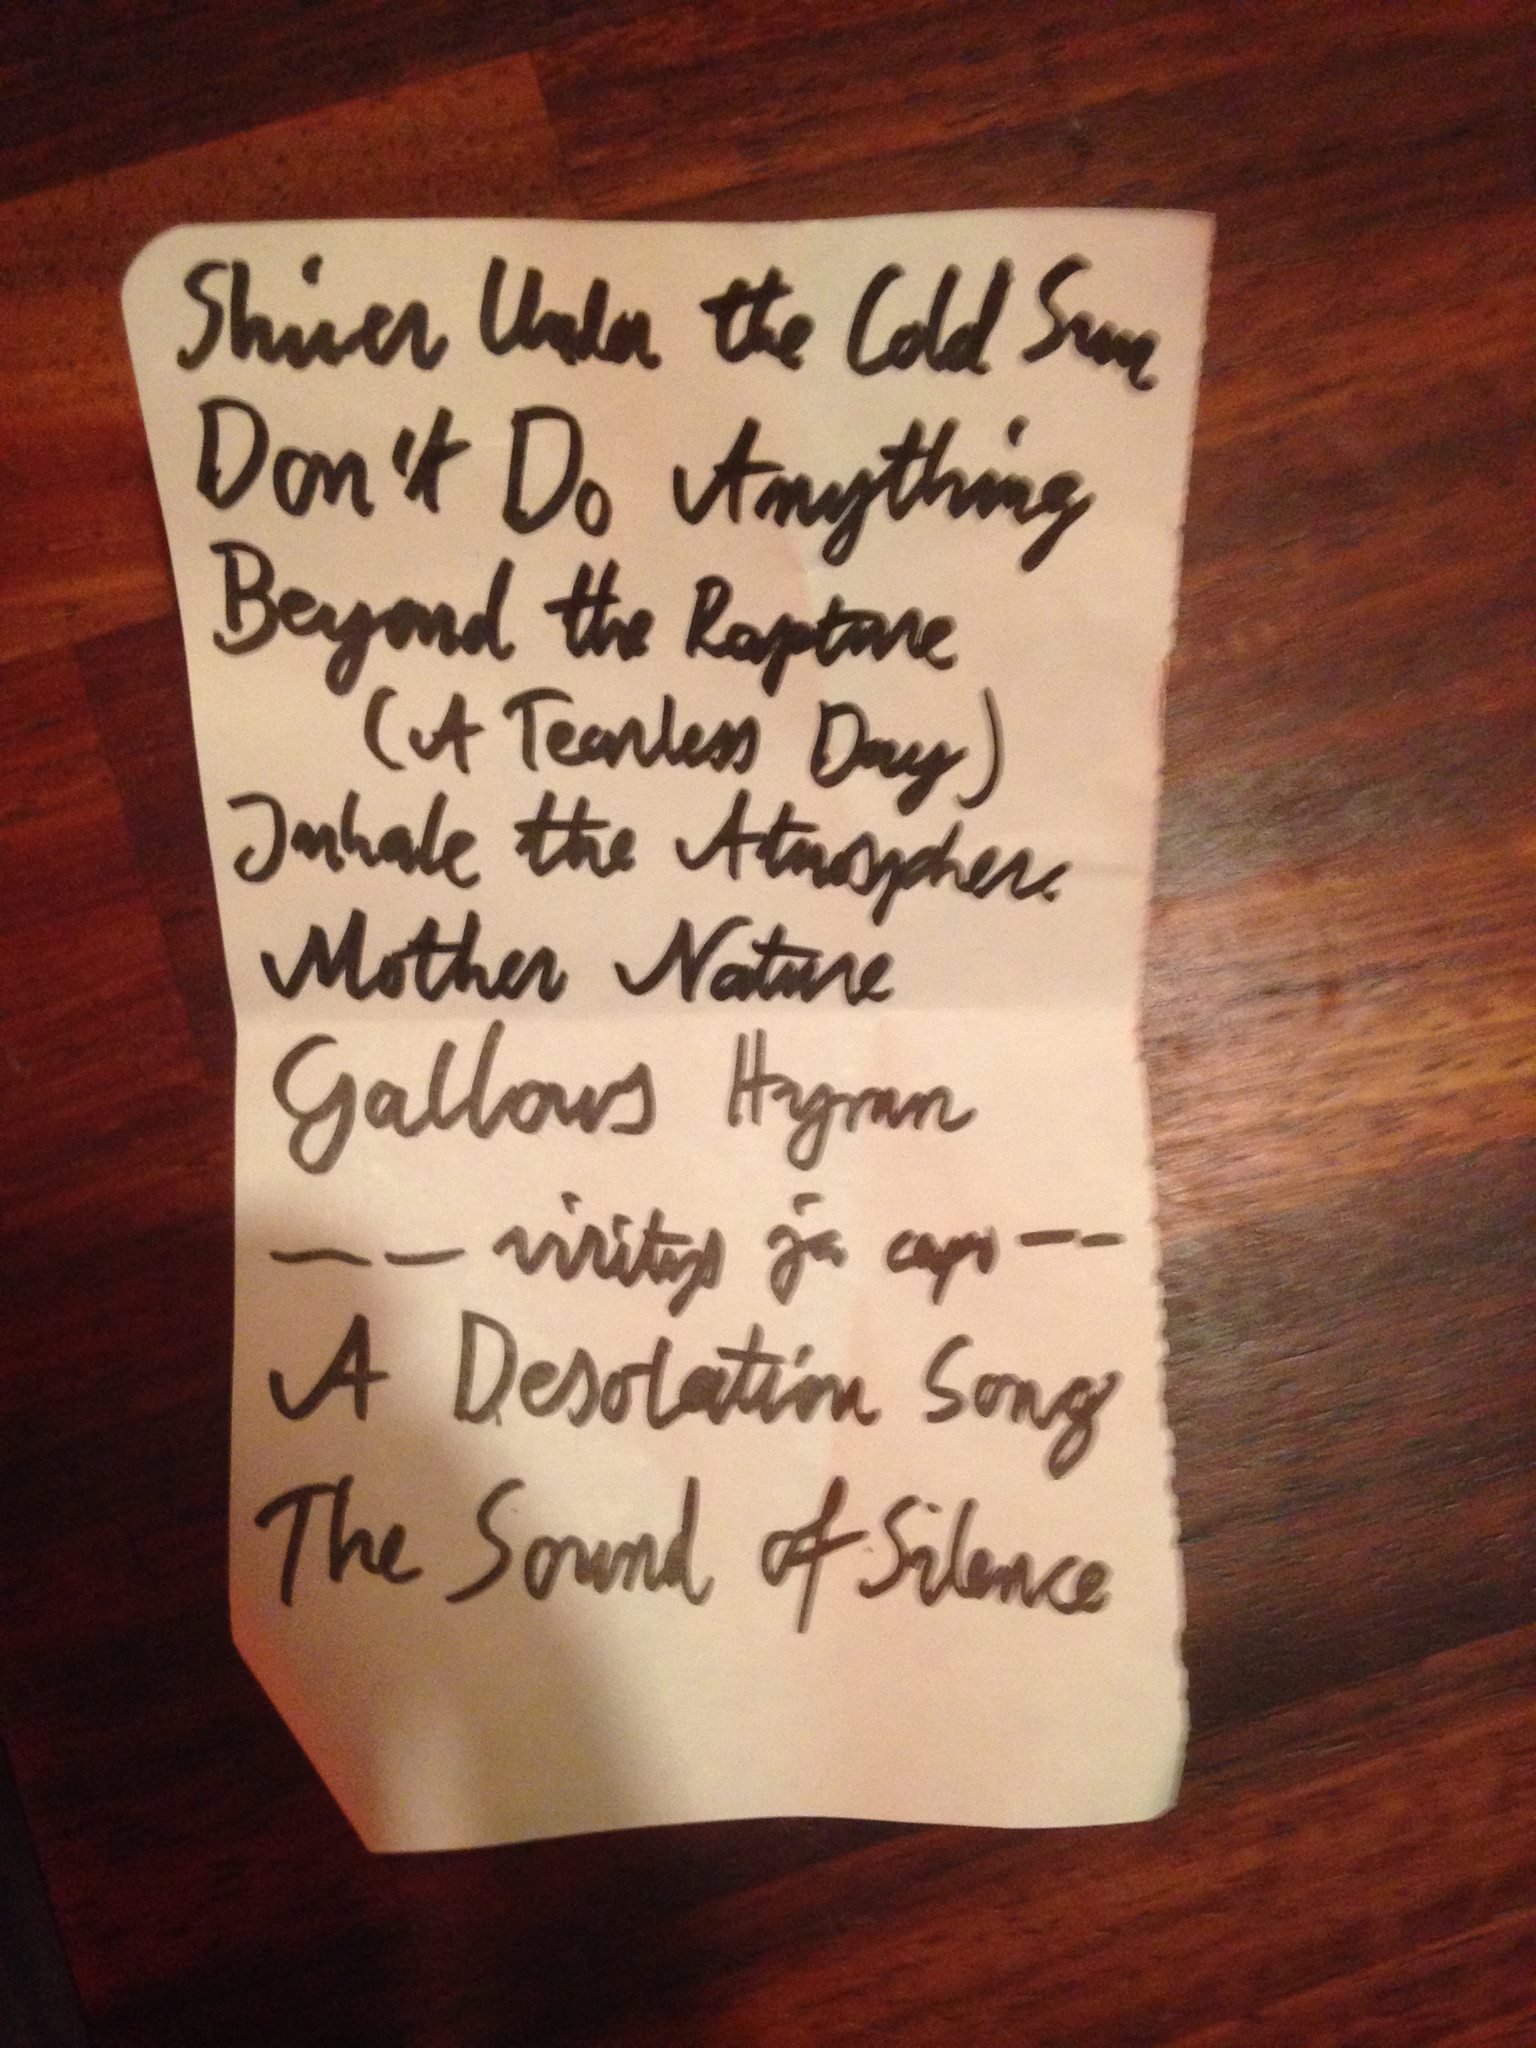 Shiver Under the Cold Sun
Don't Do Anything
Beyond the Rapture
(A Tearless Day)
Inhale the Atmosphere
Mother Nature
Gallows Hymn
—— viritys ja capo --
A Desolation Song
The Sound of Silence